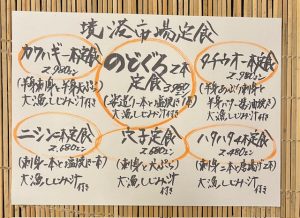 境港市場定食
カワハギ一本定食
2,980エン
(半身刺身と半身天ぷら)
大漁しじみ汁付き
のどぐろ2本
定食
3,980エン
(炙造り一本と塩焼き一本)
大漁しじみ汁付き
タチウオ一本定食
2,980エン
(半身あぶり刺身と
半身バター醤油焼き)
大漁しじみ汁付き
ニシン一本定食
2,680エン
(刺身一本と塩焼き一本)
大漁しじみ汁付き
穴子定食
2,680エン
(刺身と天ぷら)
大漁しじみ汁付き
ハタハタ4本定食
2,480エン
(刺身二本と唐揚げ2本)
大漁しじみ汁付き